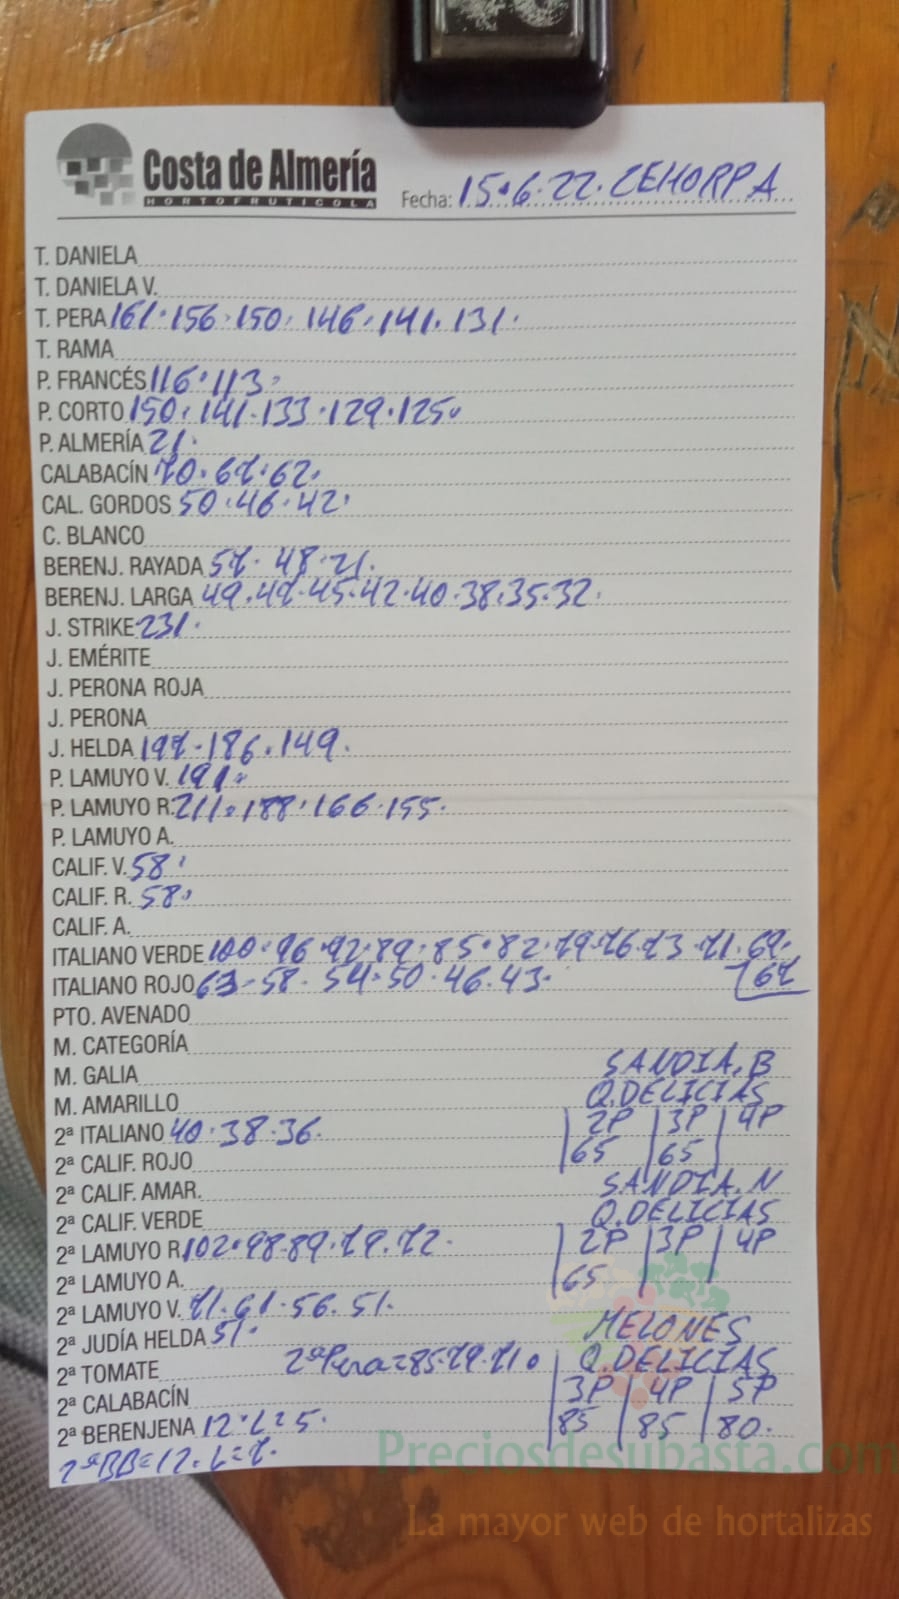 Costa de Almería
HORTOFRUTICOLA
Fecha: 15.6.22. CEHORPA
T. DANIELA
T. DANIELA V.
T. PERA 161.156.150.146.141.131.
T. RAMA
P. FRANCÉS 116.113.
P. CORTO 150.141.133.129.125.
P. ALMERÍA 21.
CALABACÍN 70.67.62.
CAL. GORDOS 50.46.42.
C. BLANCO
BERENJ. RAYADA 57.48.21.
BERENJ. LARGA 49.47.45.42.40.38.35.32.
J. STRIKE 231.
J. EMÉRITE
J. PERONA ROJA
J. PERONA
J. HELDA 197.186.149.
P. LAMUYO V. 191.
P. LAMUYO R. 211.188.166.155.
P. LAMUYO A.
CALIF. V. 58.
CALIF. R. 58.
CALIF. A.
ITALIANO VERDE 100.96.92.89.85.82.79.76.73.71.69.
ITALIANO ROJO 63.58.54.50.46.43. 67
PTO. AVENADO
M. CATEGORÍA
M. GALIA SANDIA.B
M. AMARILLO Q.DELICIAS
2ª ITALIANO 40.38.36. 2P 3P 4P
2ª CALIF. ROJO 65 65
2ª CALIF. AMAR. SANDIA.N
2ª CALIF. VERDE Q.DELICIAS
2ª LAMUYO R. 102.98.89.79.72. 2P 3P 4P
2ª LAMUYO A. 65
2ª LAMUYO V. 71.61.56.51.
2ª JUDÍA HELDA 51. MELONES
2ª TOMATE 2ªPera=85.79.71. Q.DELICIAS
2ª CALABACÍN 3P 4P 5P
2ª BERENJENA 12.L=5. 85 85 80.
2ªBB=12.L=7.
Preciosdesubasta.com
La mayor web de hortalizas